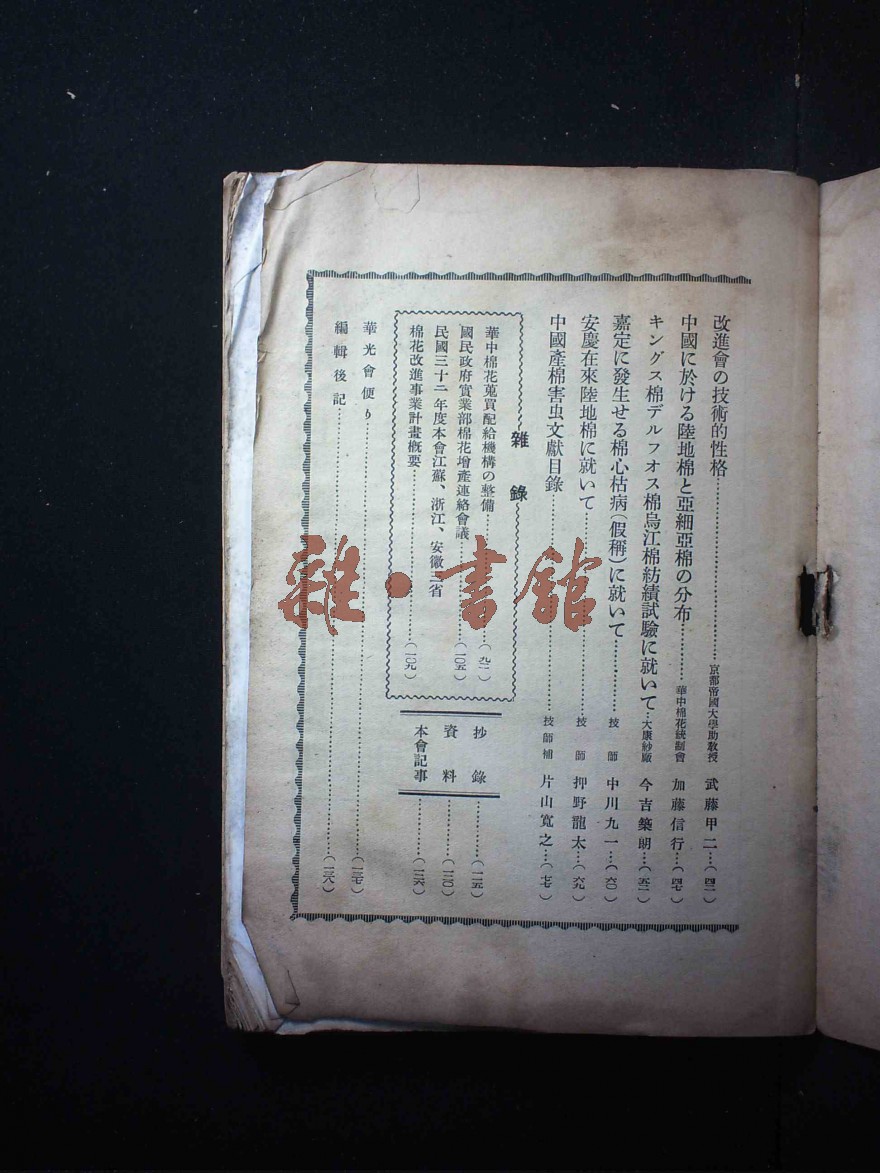 改進會の技術的性格……京都帝國大學助教授 武藤甲二…(四二)
中國に於ける陸地棉と亞細亞棉の分布……華中棉花統制會 加藤信行…(四七)
キングス棉デルフオス棉烏江棉紡績試驗に就いて…大康紗廠 今吉築朗…(五二)
嘉定に發生せる棉心枯病(假稱)に就いて……技師 中川九一…(六〇)
安慶在來陸地棉に就いて……技師 押野龍太…(六九)
中國產棉害虫文獻目錄……技師補 片山寬之…(七七)
雜錄
華中棉花蒐買配給機構の整備……(九二)
國民政府實業部棉花增產連絡會議……(一〇五)
民國三十二年度本會江蘇、浙江、安徽三省
棉花改進事業計畫槪要……(一〇九)
抄錄……(一一五)
資料……(一二〇)
本會記事……(一二六)
華光會便り……(一三七)
編輯後記……(一三八)
雜·書館